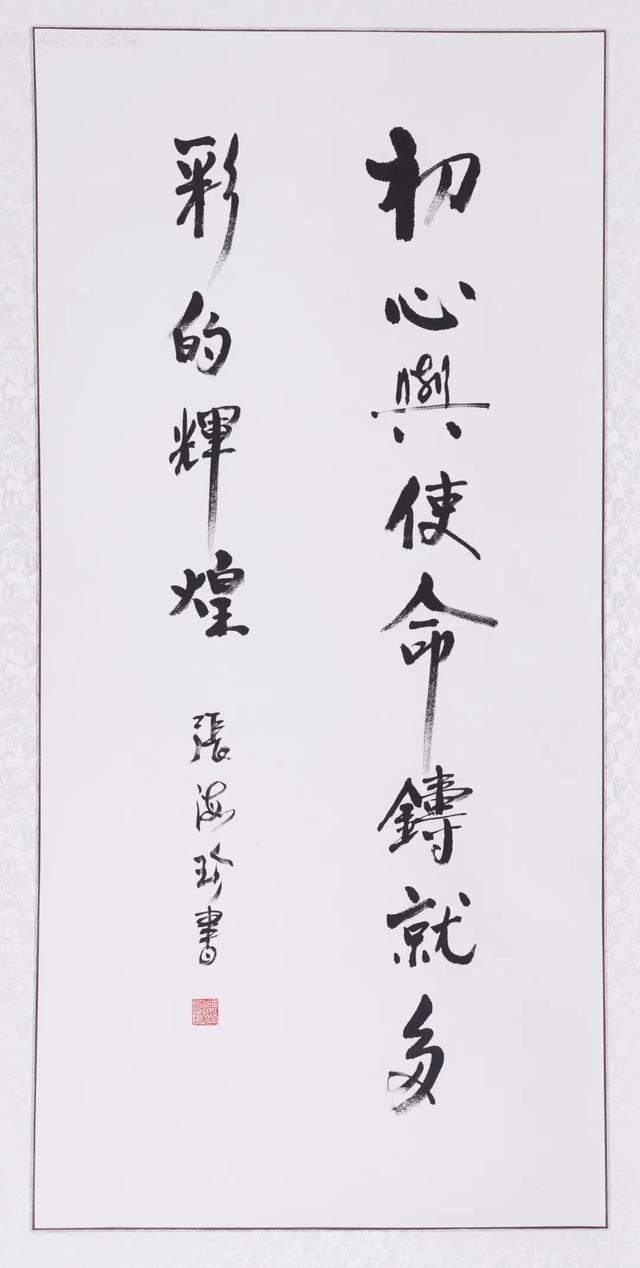 初心與使命鑄就多
彩的輝煌
張海珍書